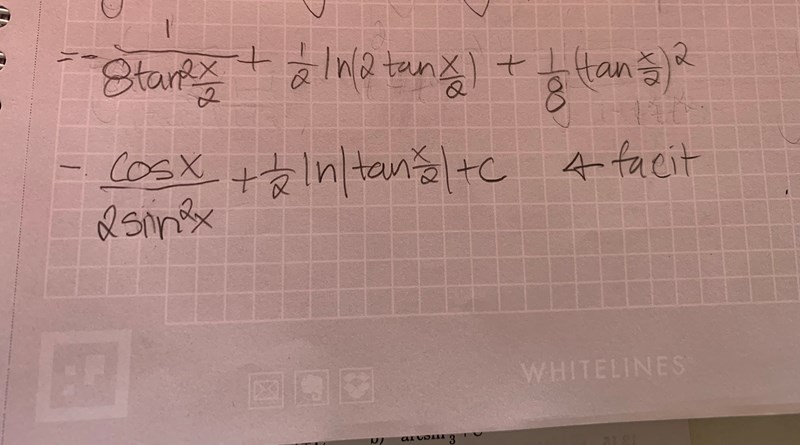 = - 1/(8tan² x/2) + 1/2 ln(2 tan x/2) + 1/8 (tan x/2)²
- cosx/(2sin²x) + 1/2 ln|tan x/2| + C ← facit
WHITELINES